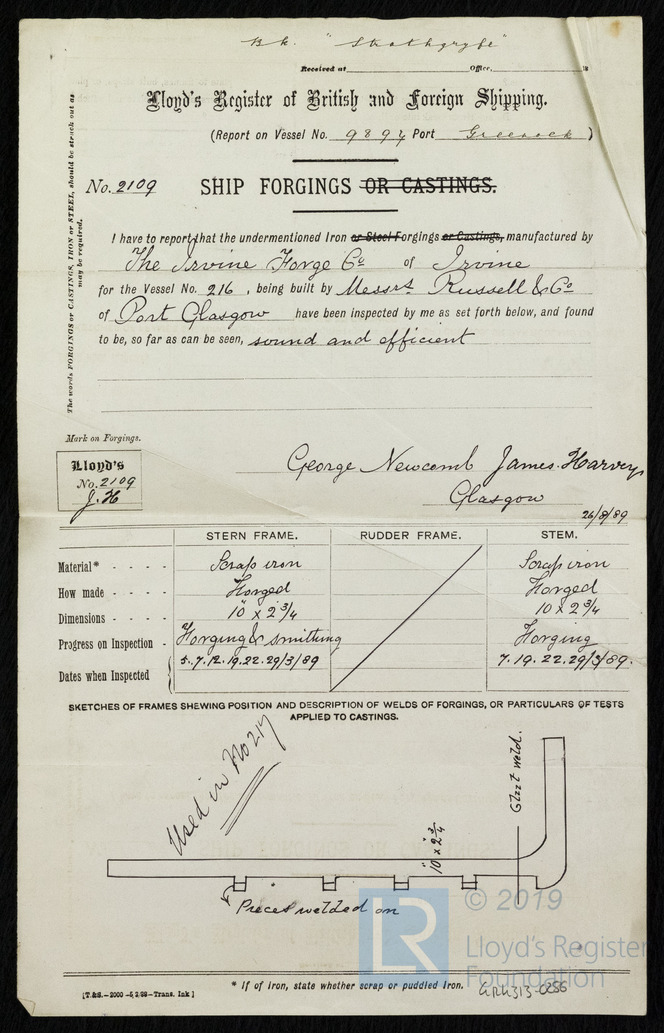 Bk. "Strathgryfe"
Received at Office, 18
Lloyd's Register of British and Foreign Shipping.
(Report on Vessel No. 9894 Port Greenock)
No. 2109 SHIP FORGINGS OR CASTINGS.
The words FORGINGS or CASTINGS, IRON or STEEL, should be struck out as
may be required.
I have to report that the undermentioned Iron or Steel Forgings or Castings, manufactured by
The Irvine Forge Co of Irvine
for the Vessel No. 216, being built by Messrs Russell & Co
of Port Glasgow have been inspected by me as set forth below, and found
to be, so far as can be seen, sound and efficient
Mark on Forgings.
Lloyd's
No. 2109
J.H
George Newcomb James Harvey
Glasgow
26/8/89
STERN FRAME. RUDDER FRAME. STEM.
Material* - - - - Scrap iron Scrap iron
How made - - - - Forged Forged
Dimensions - - - - 10" x 2 3/4 10 x 2 3/4
Progress on Inspection - Forging & smithing Forging
Dates when Inspected 5.7.12.19.22.29/3/89 7.19.22.29/3/89.
SKETCHES OF FRAMES SHEWING POSITION AND DESCRIPTION OF WELDS OF FORGINGS, OR PARTICULARS OF TESTS
APPLIED TO CASTINGS.
Used in No 217
Glut weld.
10" x 2 3/4"
Pieces welded on
© 2019
LR
Lloyd's Register
Foundation
* If of Iron, state whether scrap or puddled Iron.
[T.&S.—2000—5,2,88—Trans. Ink]
GRK313-0256